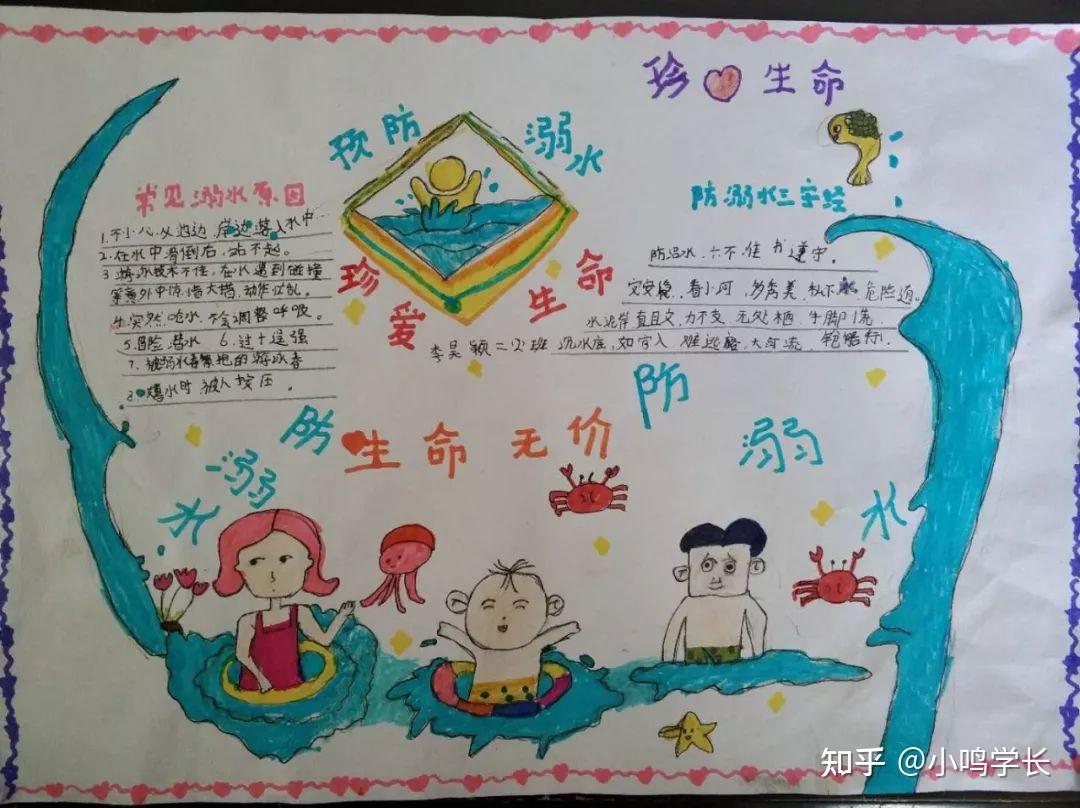 珍 生命
预防溺水
珍爱生命
常见溺水原因
1.不小心从池边、岸边落入水中…
2.在水中滑倒右,站不起。
3 技术不佳,在水遇到碰撞
等意外中惊惶 措,动作 乱。
4.突然呛水,不会调整呼吸。
5.冒险潜水 6.过于逞强
7. 溺水者 的游泳者
8.嬉水时被人按压。
防溺水三字经
防溺水,六不 遵守。
看小河,多秀美,私下水 危险
水泥岸 直且 力不支,无处栖,牛脚
沉水底,如 入 难逃 大江流,
李昊颖二 班
防溺水
生命无价
防溺水
知乎 @小鸣学长